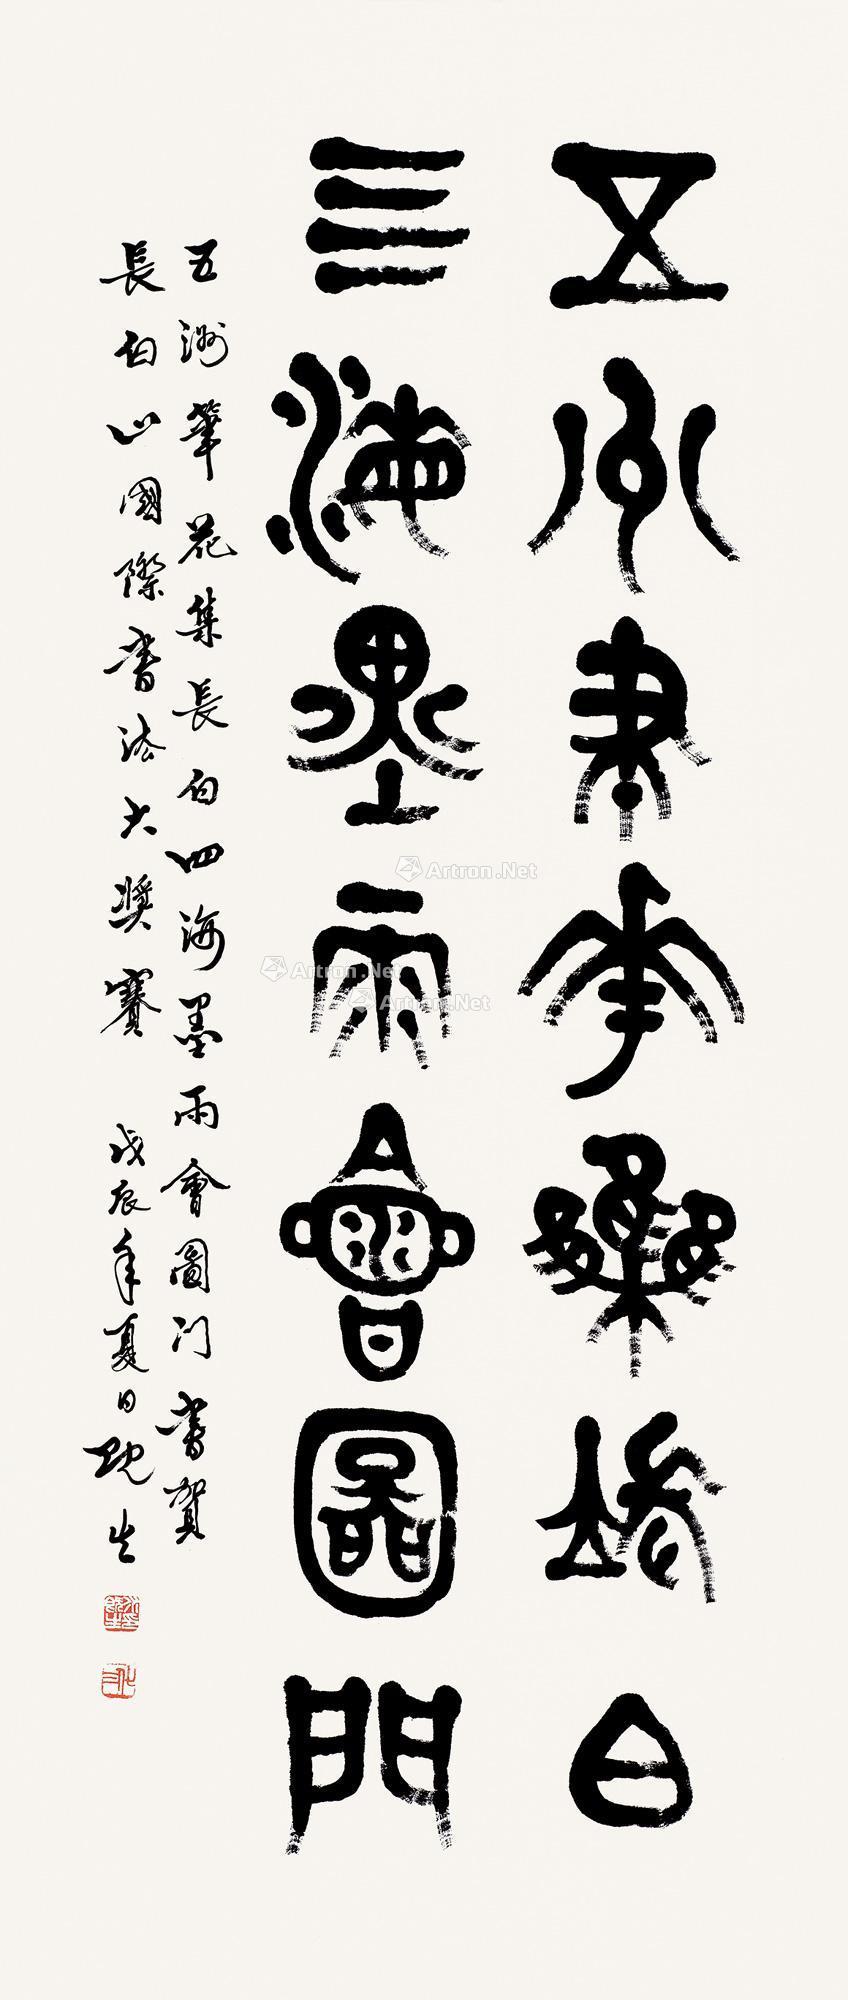 五州筆花集長白
四海墨雨會圖門
五洲筆花集長白四海墨雨會圖门書賀
長白山國際書法大奖賽 戊辰年夏日
Artron.Net
Artron.Net
Artron.Net